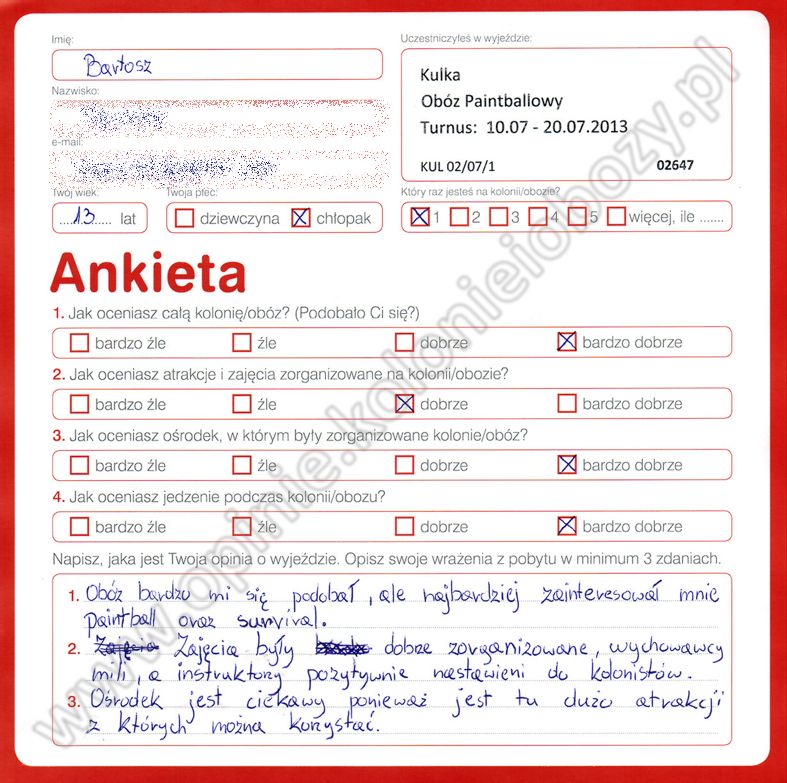 Imię:
Bartosz
Nazwisko:
e-mail:
Twój wiek:
13 lat
Twoja płeć:
dziewczyna chłopak
Uczestniczyłeś w wyjeździe:
Kulka
Obóz Paintballowy
Turnus: 10.07 - 20.07.2013
KUL 02/07/1 02647
Który raz jesteś na kolonii/obozie?
1 2 3 4 5 więcej, ile .......
Ankieta
1. Jak oceniasz całą kolonię/obóz? (Podobało Ci się?)
bardzo źle źle dobrze bardzo dobrze
2. Jak oceniasz atrakcje i zajęcia zorganizowane na kolonii/obozie?
bardzo źle źle dobrze bardzo dobrze
3. Jak oceniasz ośrodek, w którym były zorganizowane kolonie/obóz?
bardzo źle źle dobrze bardzo dobrze
4. Jak oceniasz jedzenie podczas kolonii/obozu?
bardzo źle źle dobrze bardzo dobrze
Napisz, jaka jest Twoja opinia o wyjeździe. Opisz swoje wrażenia z pobytu w minimum 3 zdaniach.
1. Obóz bardzo mi się podobał, ale najbardziej zainteresował mnie
paintball oraz survival.
2. Zajęcia były dobrze zorganizowane, wychowawcy
mili, a instruktorzy pozytywnie nastawieni do kolonistów.
3. Ośrodek jest ciekawy ponieważ jest tu dużo atrakcji
z których można korzystać.
www.opinie.kolonieiobozy.pl